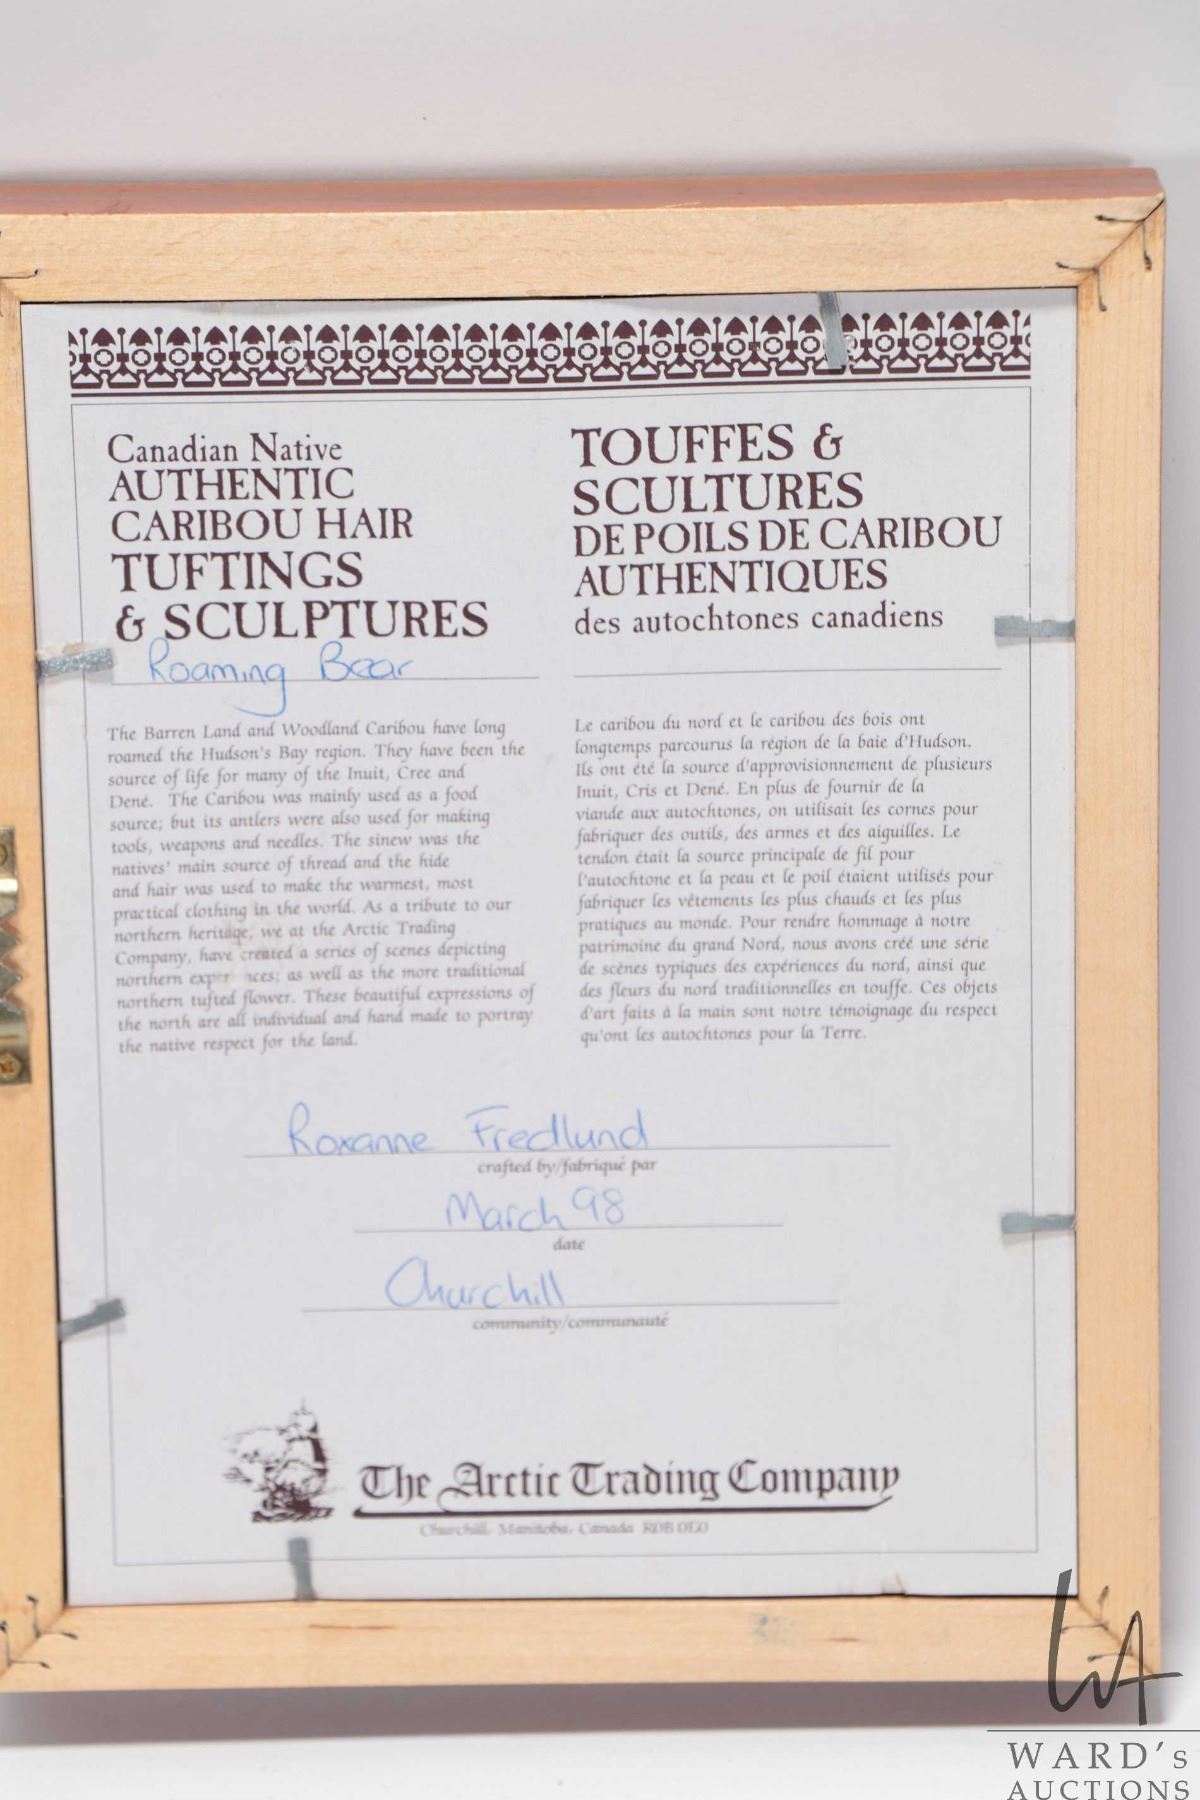 Canadian Native
AUTHENTIC
CARIBOU HAIR
TUFTINGS
& SCULPTURES
Roaming Bear
The Barren Land and Woodland Caribou have long
roamed the Hudson's Bay region. They have been the
source of life for many of the Inuit, Cree and
Dené. The Caribou was mainly used as a food
source; but its antlers were also used for making
tools, weapons and needles. The sinew was the
natives' main source of thread and the hide
and hair was used to make the warmest, most
practical clothing in the world. As a tribute to our
northern heritage, we at the Arctic Trading
Company, have created a series of scenes depicting
northern exper nces; as well as the more traditional
northern tufted flower. These beautiful expressions of
the north are all individual and hand made to portray
the native respect for the land.
TOUFFES &
SCULTURES
DE POILS DE CARIBOU
AUTHENTIQUES
des autochtones canadiens
Le caribou du nord et le caribou des bois ont
longtemps parcourus la région de la baie d'Hudson.
Ils ont été la source d'approvisionnement de plusieurs
Inuit, Cris et Dené. En plus de fournir de la
viande aux autochtones, on utilisait les cornes pour
fabriquer des outils, des armes et des aiguilles. Le
tendon était la source principale de fil pour
l'autochtone et la peau et le poil étaient utilisés pour
fabriquer les vêtements les plus chauds et les plus
pratiques au monde. Pour rendre hommage à notre
patrimoine du grand Nord, nous avons créé une série
de scènes typiques des expériences du nord, ainsi que
des fleurs du nord traditionnelles en touffe. Ces objets
d'art faits à la main sont notre témoignage du respect
qu'ont les autochtones pour la Terre.
Roxanne Fredlund
crafted by/fabriqué par
March 98
date
Churchill
community/communauté
The Arctic Trading Company
Churchill, Manitoba, Canada R0B 0E0
WA
WARD's
AUCTIONS